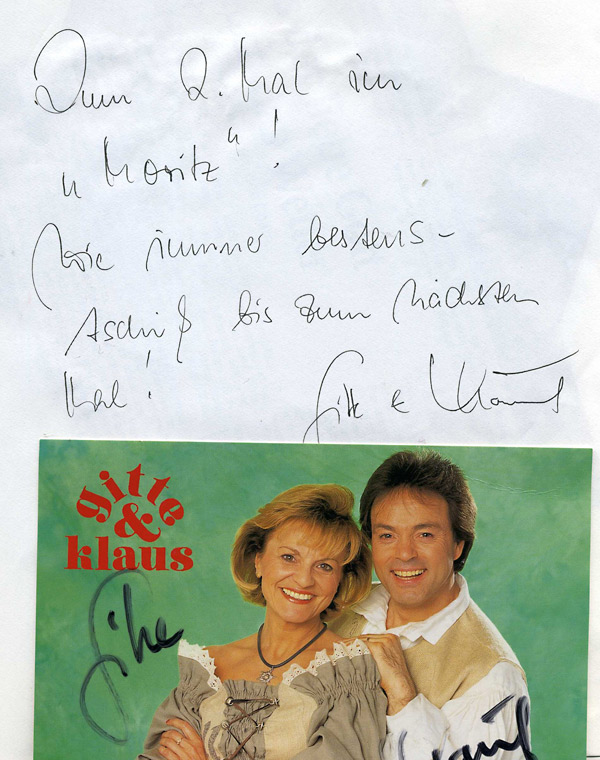 Zum 2. Mal im
„Moritz“!
Wie immer bestens -
Tschüß bis zum nächsten
Mal!
Gitte & Klaus
gitte
&
klaus
Gitte
Klaus